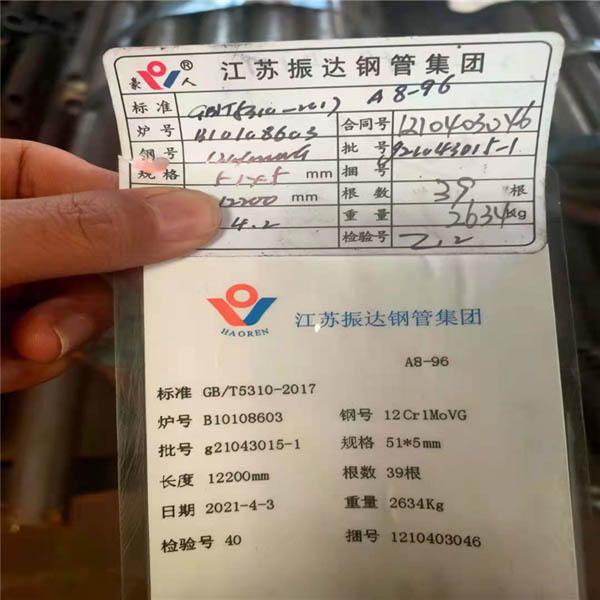 豪人 ® 江苏振达钢管集团
标准 GB/T5310-2017 A8-96
炉号 B10108603 合同号 1210403046
钢号 12Cr1MoVG 批号 g21043015-1
规格 51×5 mm 捆号
12200 mm 根数 39 根
4.2 重量 2634kg
检验号
HAOREN 江苏振达钢管集团
A8-96
标准 GB/T5310-2017
炉号 B10108603 钢号 12Cr1MoVG
批号 g21043015-1 规格 51*5mm
长度 12200mm 根数 39根
日期 2021-4-3 重量 2634Kg
检验号 40 捆号 1210403046